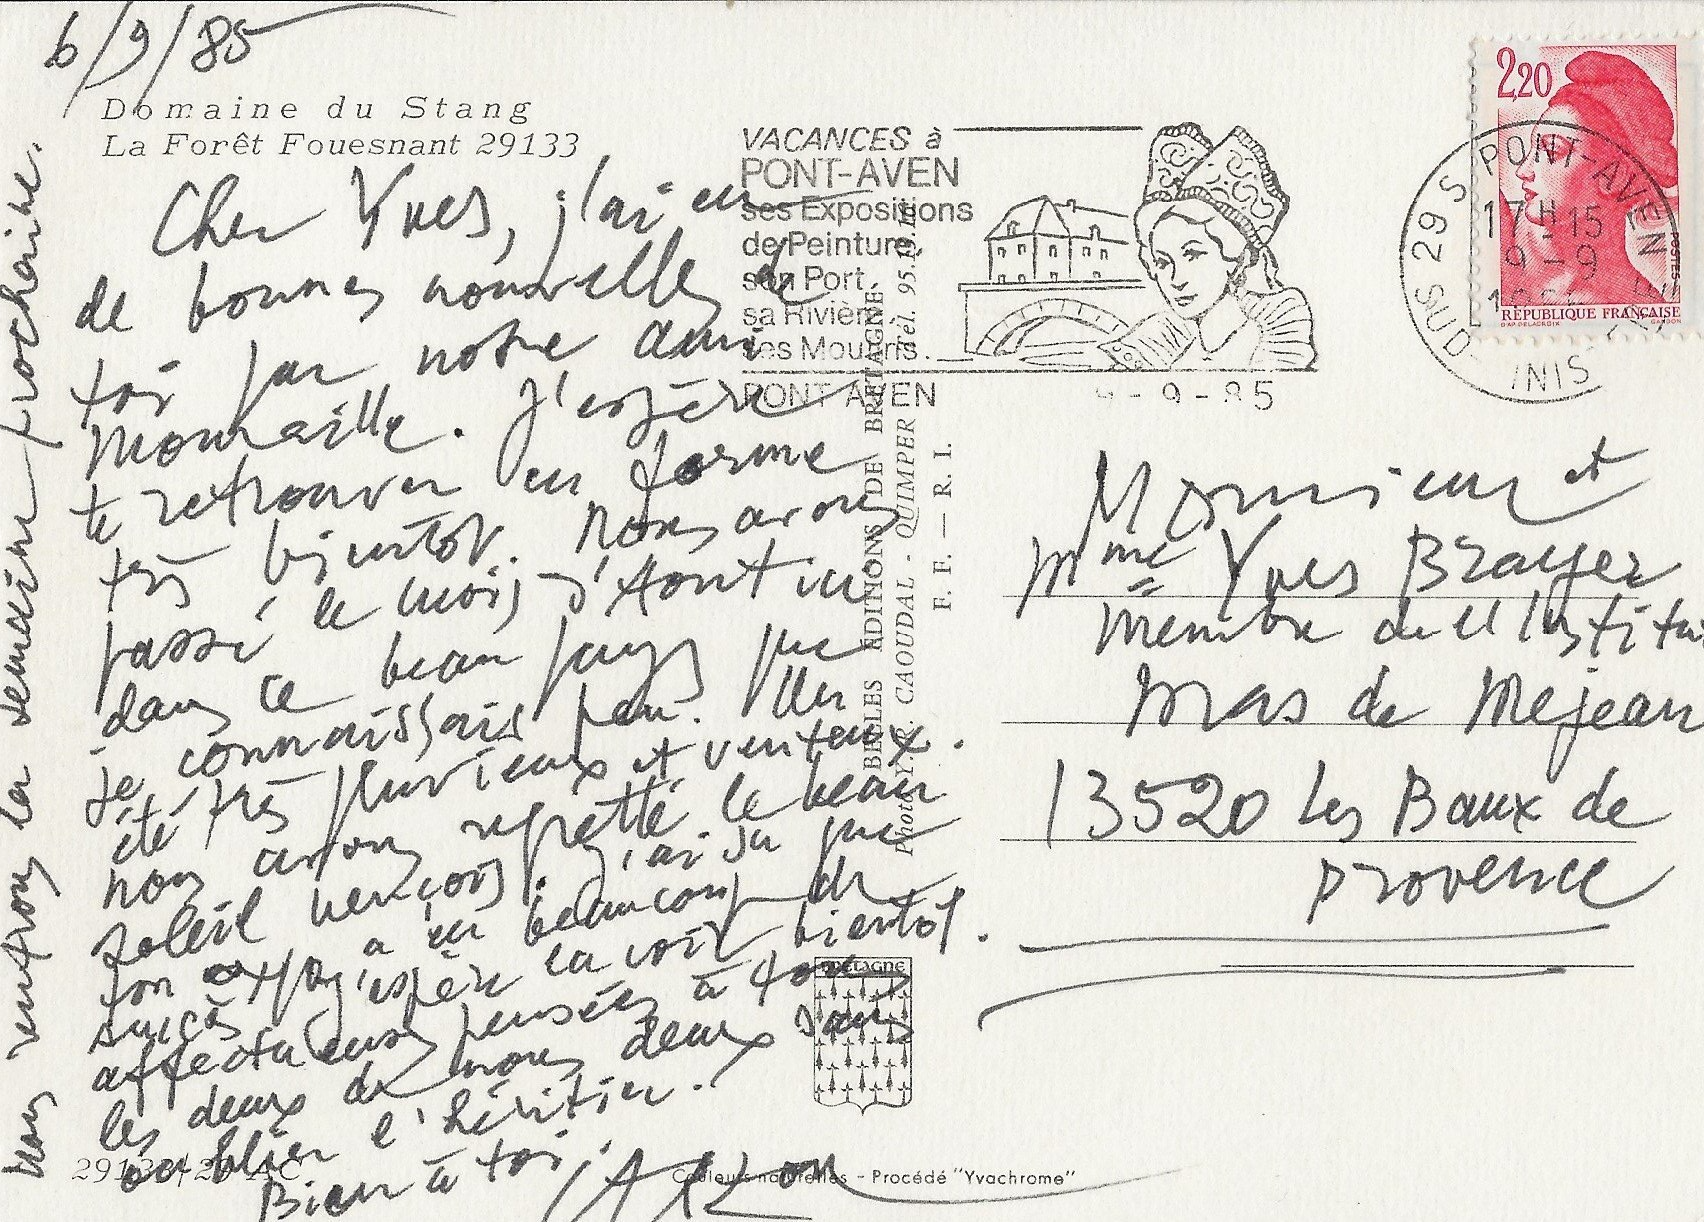 6/9/85
Domaine du Stang
La Forêt Fouesnant 29133
Cher Yves, j'ai eu
de bonnes nouvelles de
toi par notre ami
J'espère
te retrouver en forme
très bientôt. Nous avons
passé le mois d'Aout ici
dans ce beau pays que
je connaissais peu. Un
été très pluvieux et venteux.
nous avons regretté le beau
soleil vençois. j'ai su que
ton expo a eu beaucoup de
succès j'espère la voir bientôt.
affectueuses pensées à tous
les deux de nous deux sans
oublier l'héritier.
Bien à toi.
nous rentrons la semaine prochaine.
29133/20 AC
Couleurs naturelles - Procédé "Yvachrome"
BELLES ÉDITIONS DE BRETAGNE
Photo Y. R. CAOUDAL - QUIMPER Tél. 95.
F. F. — R. I.
VACANCES à
PONT-AVEN
ses Expositions
de Peinture
son Port
sa Rivière
ses Moulins.
PONT AVEN
9-9-85
PONT-AVEN
29 S
17H15
9-9
SUD FINIS
2,20
POSTES
RÉPUBLIQUE FRANÇAISE
D'AP. DELACROIX
GANDON
Monsieur et
Mme Yves Brayer
Membre de l'Institut
Mas de Mejean
13520 Les Baux de
Provence
BRETAGNE